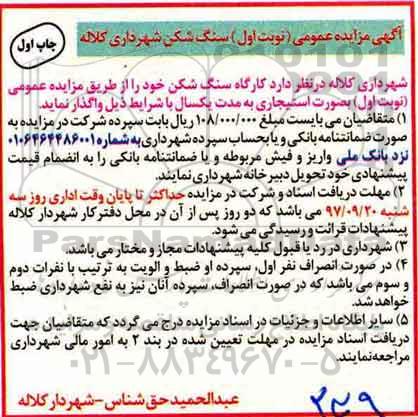 آگهی مزایده عمومی (نوبت اول) سنگ شکن شهرداری کلاله
چاپ اول
شهرداری کلاله درنظر دارد کارگاه سنگ شکن خود را از طریق مزایده عمومی
(نوبت اول) بصورت استیجاری به مدت یکسال با شرایط ذیل واگذار نماید.
۱) متقاضیان می بایست مبلغ ۱۰۸/۰۰۰/۰۰۰ ریال بابت سپرده شرکت در مزایده به
صورت ضمانتنامه بانکی و یا بحساب سپرده شهرداری به شماره ۰۱۰۶۴۶۴۴۸۶۰۰۱
نزد بانک ملی واریز و فیش مربوطه و یا ضمانتنامه بانکی را به انضمام قیمت
پیشنهادی خود تحویل دبیرخانه شهرداری نمایند.
۲) مهلت دریافت اسناد و شرکت در مزایده حداکثر تا پایان وقت اداری روز سه
شنبه ۹۷/۰۹/۲۰ می باشد که دو روز پس از آن در محل دفترکار شهردار کلاله
پیشنهادات قرائت و رسیدگی می شود.
۳) شهرداری در رد یا قبول کلیه پیشنهادات مجاز و مختار می باشد.
۴) در صورت انصراف نفر اول، سپرده او ضبط و الویت به ترتیب با نفرات دوم
و سوم می باشد که در صورت انصراف، سپرده آنان نیز به نفع شهرداری ضبط
خواهد شد.
۵) سایر اطلاعات و جزئیات در اسناد مزایده درج می گردد که متقاضیان جهت
دریافت اسناد مزایده در مهلت تعیین شده در بند ۲ به امور مالی شهرداری
مراجعه نمایند.
۰۲۱-۸۸۳۴۹۶۷۰-۵
عبدالحمید حق شناس - شهردار کلاله
۳۲۹